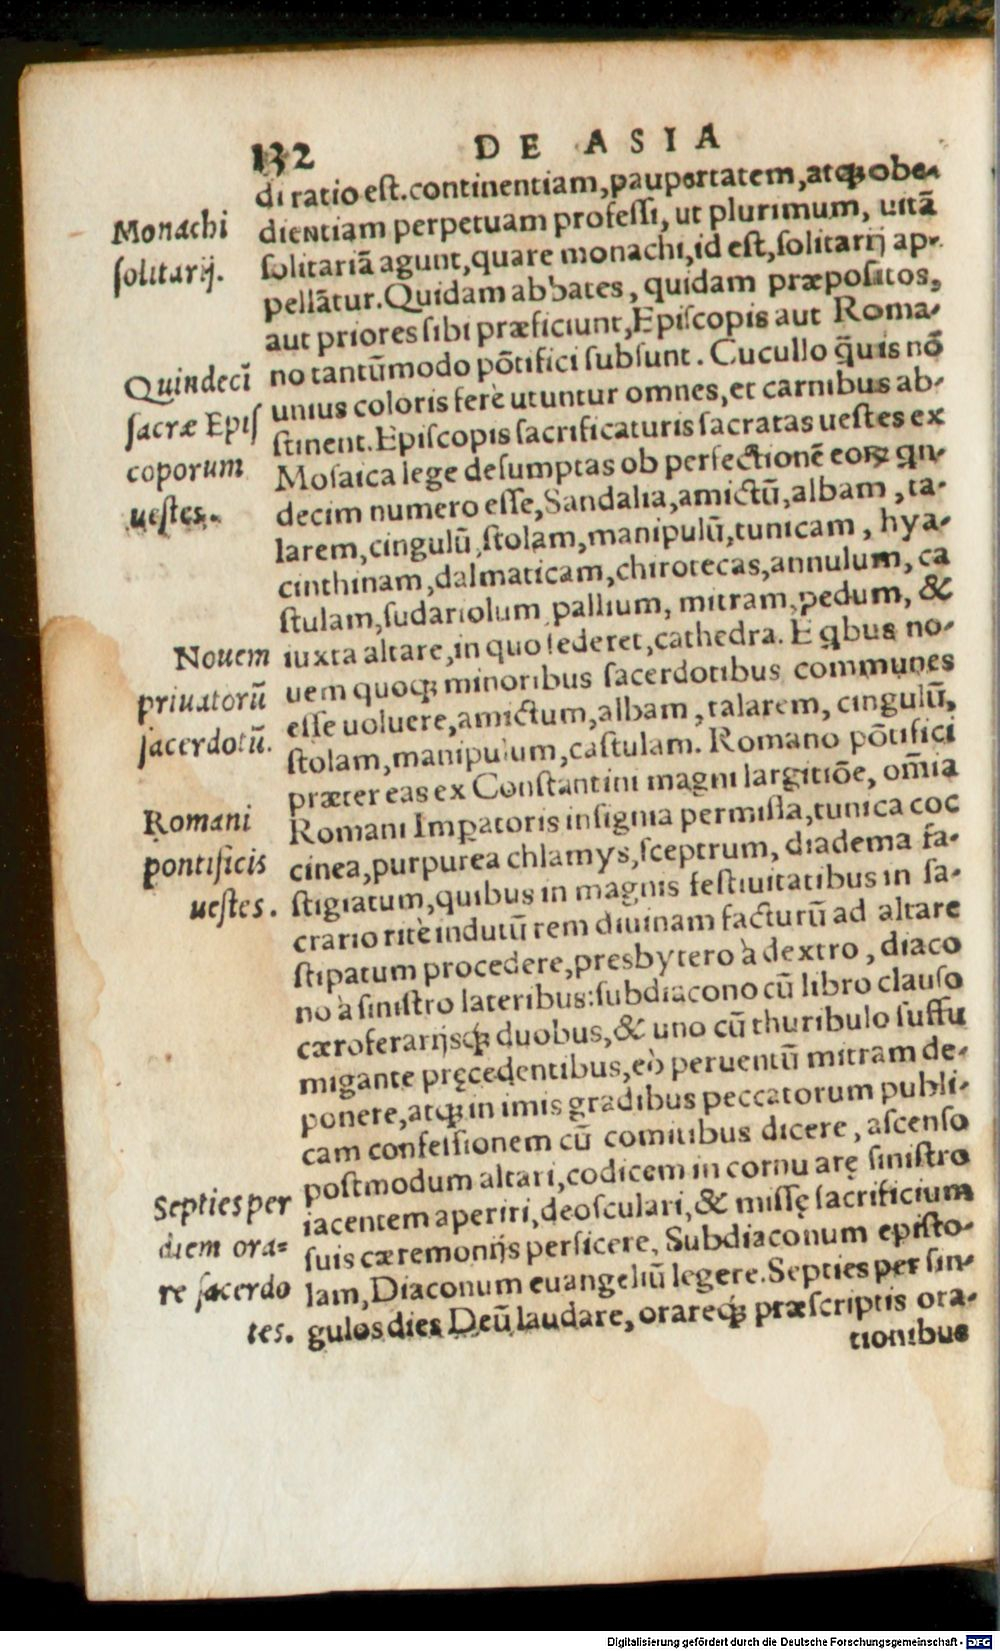 132 DE ASIA
di ratio est. continentiam, paupertatem, atq; obe-
Monachi
dientiam perpetuam professi, ut plurimum, uitā
solitarij.
solitariā agunt, quare monachi, id est, solitarij ap-
pellātur. Quidam abbates, quidam præpositos,
aut priores sibi præficiunt, Episcopis aut Roma-
no tantūmodo pōtifici subsunt. Cucullo q̄uis nō
Quindecī
unius coloris ferè utuntur omnes, et carnibus ab-
sacræ Epis
stinent. Episcopis sacrificaturis sacratas uestes ex
coporum
Mosaica lege desumptas ob perfectionē eoꝝ qn-
uestes.
decim numero esse, Sandalia, amictū, albam, ta-
larem, cingulū, stolam, manipulū, tunicam, hya-
cinthinam, dalmaticam, chirotecas, annulum, ca
stulam, sudariolum pallium, mitram, pedum, &
Nouem
iuxta altare, in quo sederet, cathedra. E qbus no-
priuatorū
uem quoq; minoribus sacerdotibus communes
sacerdotū.
esse uoluere, amictum, albam, talarem, cingulū,
stolam, manipulum, castulam. Romano pōtifici
præter eas ex Constantini magni largitiōe, om̄ia
Romani
Romani Imꝑatoris insignia permissa, tunica coc
pontificis
cinea, purpurea chlamys, sceptrum, diadema fa-
uestes.
stigiatum, quibus in magnis festiuitatibus in sa-
crario ritè indutū rem diuinam facturū ad altare
stipatum procedere, presbytero à dextro, diaco
no à sinistro lateribus: subdiacono cū libro clauso
cæroferarijsq; duobus, & uno cū thuribulo suffu
migante pręcedentibus, eò peruentū mitram de-
ponere, atq; in imis gradibus peccatorum publi-
cam confessionem cū comitibus dicere, ascenso
postmodum altari, codicem in cornu arę sinistro
Septies per
iacentem aperiri, deosculari, & missę sacrificium
diem ora=
suis cæremonijs perficere, Subdiaconum episto-
re sacerdo
lam, Diaconum euangeliū legere. Septies per sin-
tes.
gulos dies Deū laudare, orareq́; præscriptis ora-
tionibus
Digitalisierung gefördert durch die Deutsche Forschungsgemeinschaft - DFG